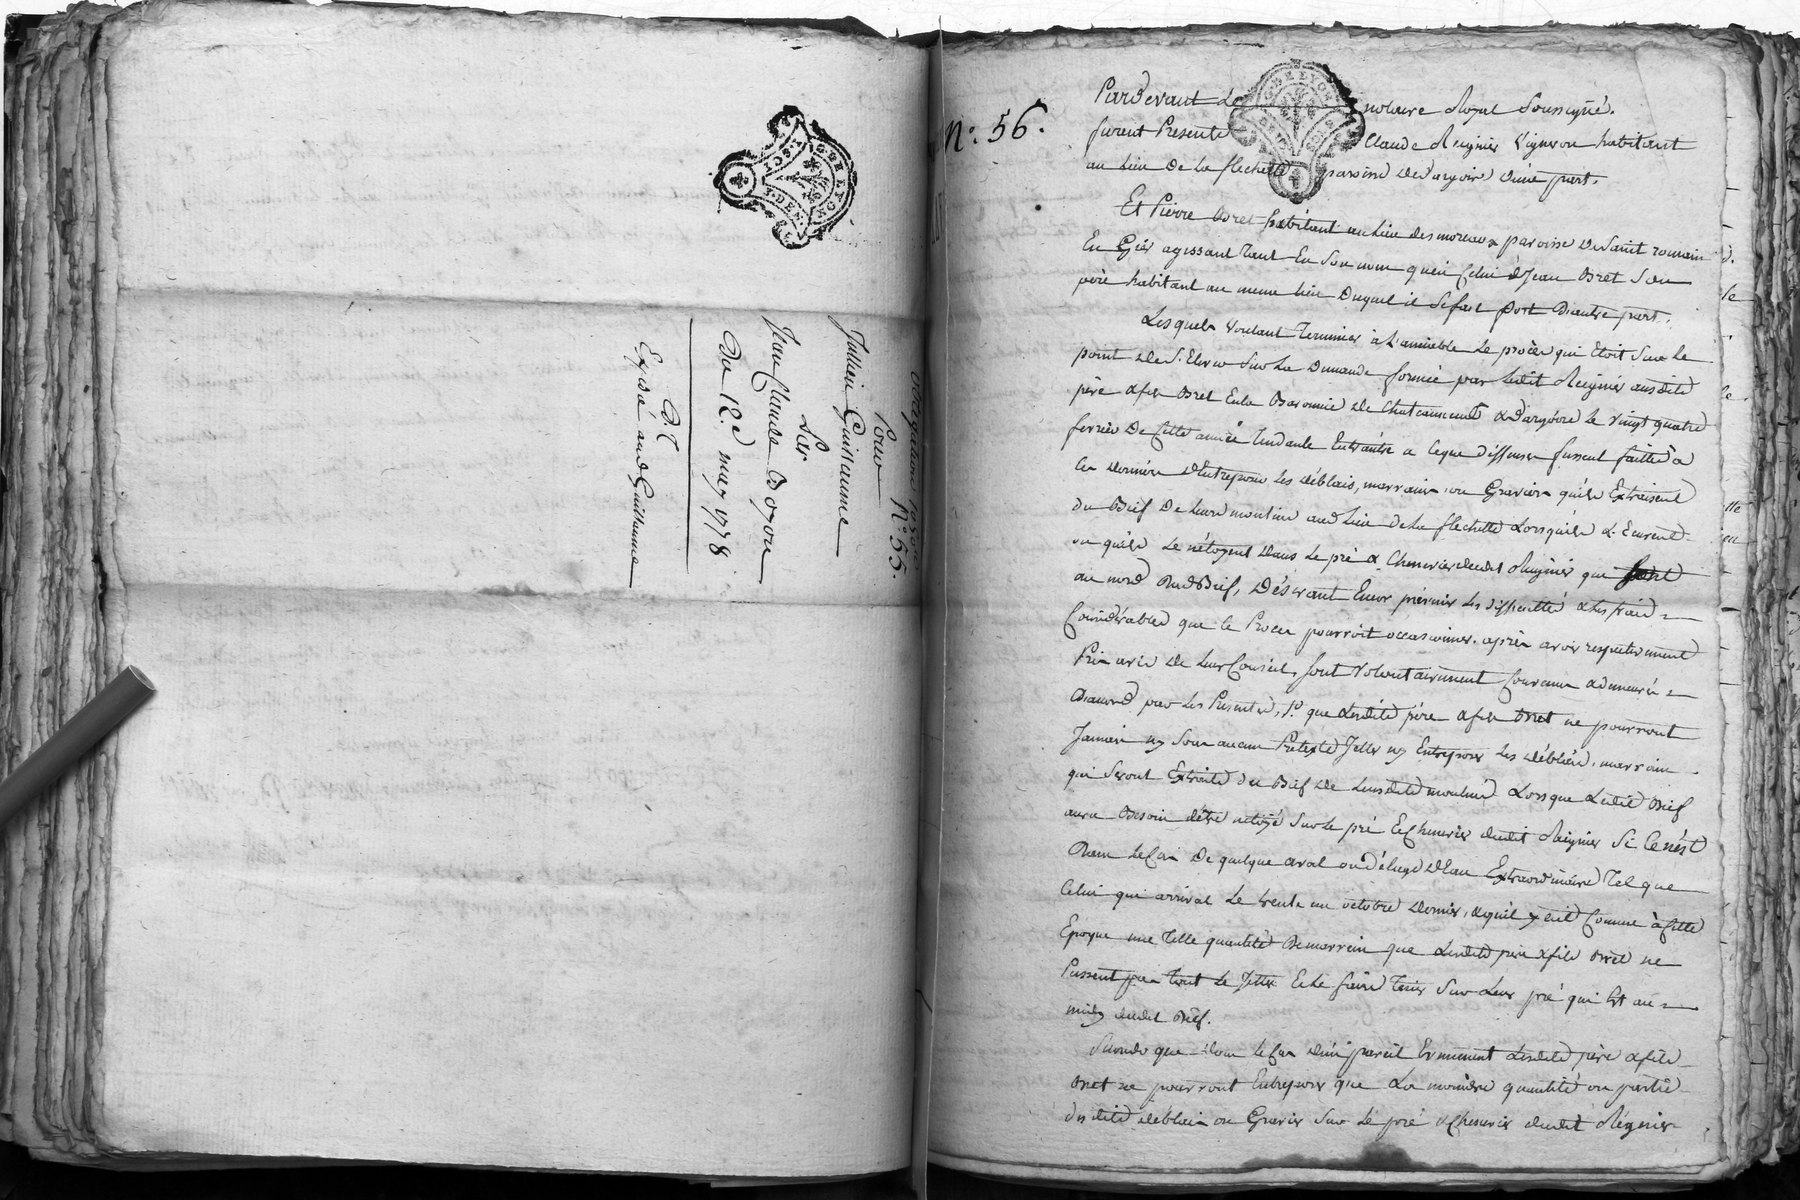 N°. 55.
Pour
Julien Guillaume
Sur
Jean Claude Boyou
Du 12e may 1778
Exp.dié aud. Guillaume
GENE LYON
N°: 56.
Pardevant Le notaire Royal Soussigné.
furent Presents Claude Reignier Vigneron habitant
au Lieu De La flechette paroisse De dargoire d'une part.
Et Pierre Bret habitant au Lieu des moreaux paroisse De Saint romain
En Gier agissant Tant En Son nom qu'en Celui de Jean Bret Son
père habitant au meme Lieu Duquel il Se fait fort D'autre part.
Lesquels Voulant Terminer à L'amiable Le procès qui Etoit Sur Le
point De S'Elever Sur La Demande formée par Ledit Reignier ausdits
père & fils Bret En La Baronnie De Chateauneuf & Dargoire Le Vingt quatre
fevrier De Cette année Tendante Entrautre a Ce que déffenses fussent faittes à
Ces Derniers D'Entreposer Les déblais, marrains ou Graviers qu'ils Extraisent
du Bief De Leurs moulins aud. Lieu De La flechette Lorsqu'ils L'Eccurent
ou qu'ils Le nétoyent Dans Le pré & Chenevier dudit Reignier que sont
au nord Dud. Bief, Désirant Encor prévenir Les difficultés & Les frais
Considérables que Ce Procès pourroit occasionner. après avoir respectivement
Pris avis De Leur Conseil, Sont Volontairement Convenus & demeurés
D'accord par Les Presentes, 1°. que Lesdits père & fils Bret ne pourront
Jamais ny Sous aucun Pretexte Jetter ny Entreposer Les déblais, marrains
qui Seront Extraits du Bief De Leursdits moulins Lorsque Ledit Bief
aura Besoin d'être nétoyé Sur Le pré & Chenevier dudit Reignier Si Ce n'est
Dans Le Cas De quelque aval ou déluge D'Eau Extraordinaire Tel que
Celui qui arrivat Le trente un octobre dernier, & qu'il y eut Comme à Cette
Epoque une Telle quantité De marrain que Lesdits père & fils Bret ne
Pussent pas Tout Le Jetter & Le faire Tenir Sur Leur pré qui Est au
midy dudit Bief.
Secundo que dans Le Cas d'un pareil Evenement Lesdits père & fils
Bret ne pourront Entreposer que La moindre quantité ou partie
desdits déblais ou Gravier Sur Le pré & Chenevier dudit Régnier